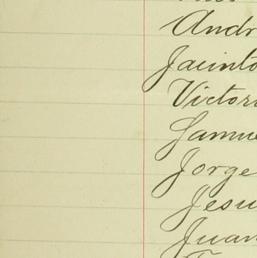 Andr
Jacinto
Victori
Samue
Jorge
Jesu
Juan